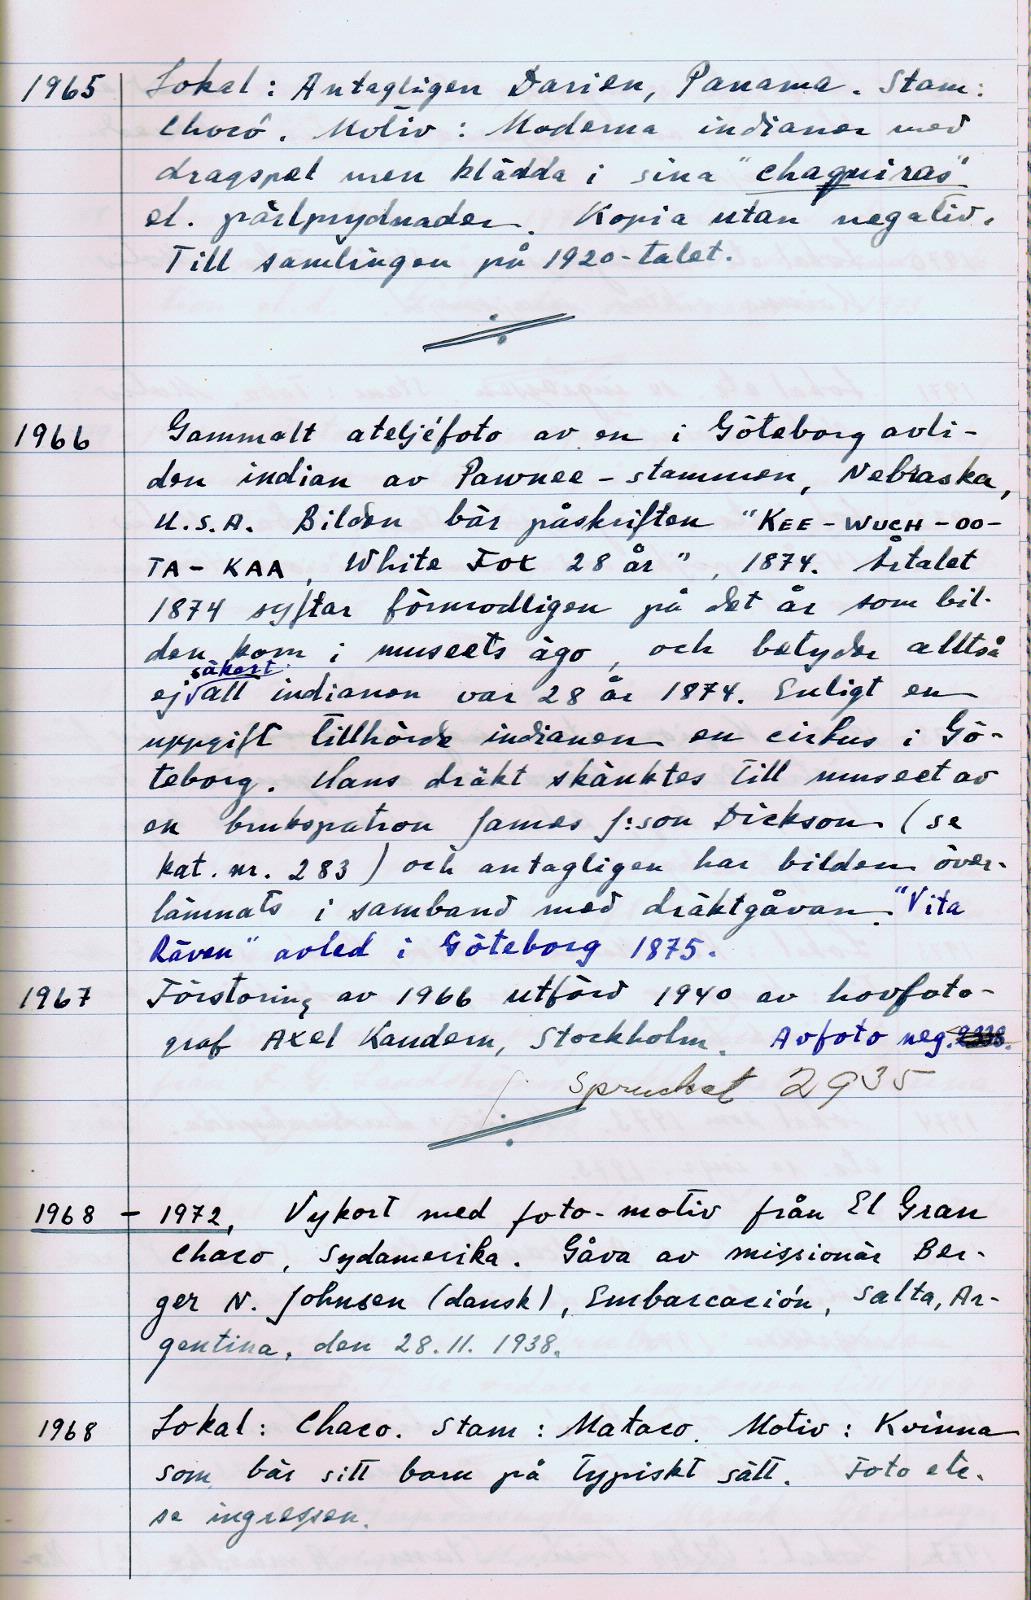 1965 Lokal: Antagligen Darien, Panama. Stam:
Chocó. Motiv: Moderna indianer med
dragspel men klädda i sina "chaquiras"
el. pärlprydnader. Kopia utan negativ.
Till samlingen på 1920-talet.
1966 Gammalt ateljéfoto av en i Göteborg avli-
den indian av Pawnee-stammen, Nebraska,
U.S.A. Bilden bär påskriften "KEE-WUCH-OO-
TA-KAA, White Fox 28 år", 1874. Årtalet
1874 syftar förmodligen på det år som bil-
den kom i museets ägo, och betyder alltså
säkert
ej att indianen var 28 år 1874. Enligt en
uppgift tillhörde indianen en cirkus i Gö-
teborg. Hans dräkt skänktes till museet av
en brukspatron James J:son Dickson (se
kat. nr. 283) och antagligen har bilden över-
lämnats i samband med dräktgåvan. "Vita
Räven" avled i Göteborg 1875.
1967 Förstoring av 1966 utförd 1940 av hovfoto-
graf Axel Kaudern, Stockholm. Avfoto neg.
Sprucket 2935
1968 - 1972, Vykort med foto-motiv från El Gran
Chaco, Sydamerika. Gåva av missionär Ber-
ger N. Johnsen (dansk), Embarcación, Salta, Ar-
gentina, den 28.11.1938.
1968 Lokal: Chaco. Stam: Mataco. Motiv: Kvinna
som bär sitt barn på typiskt sätt. Foto etc.
se ingressen.